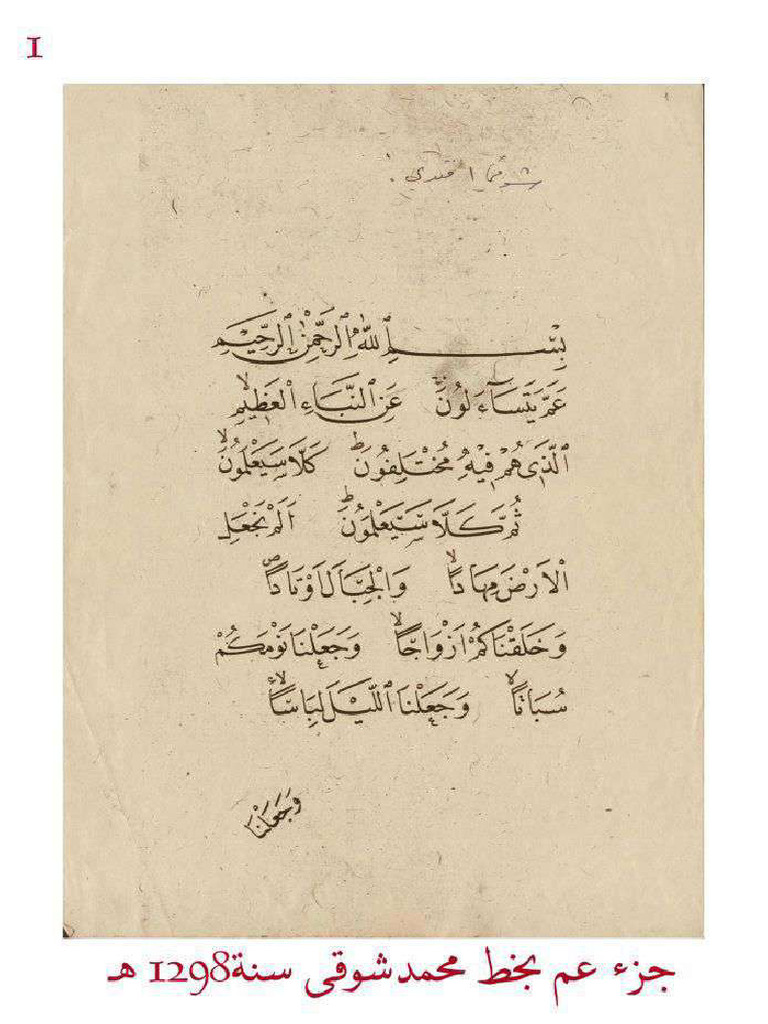 1
شوقي افندي
بِسْمِ اللّٰهِ الرَّحْمٰنِ الرَّحِيمِ
عَمَّ يَتَسَاءَلُونَ عَنِ النَّبَاءِ الْعَظِيمِ
الَّذِي هُمْ فِيهِ مُخْتَلِفُونَ كَلَّا سَيَعْلَمُونَ
ثُمَّ كَلَّا سَيَعْلَمُونَ اَلَمْ نَجْعَلِ
الْاَرْضَ مِهَادًا وَالْجِبَالَ اَوْتَادًا
وَخَلَقْنَاكُمْ اَزْوَاجًا وَجَعَلْنَا نَوْمَكُمْ
سُبَاتًا وَجَعَلْنَا اللَّيْلَ لِبَاسًا
وَجَعَلْنَا
جزء عم بخط محمد شوقي سنة 1298 هـ